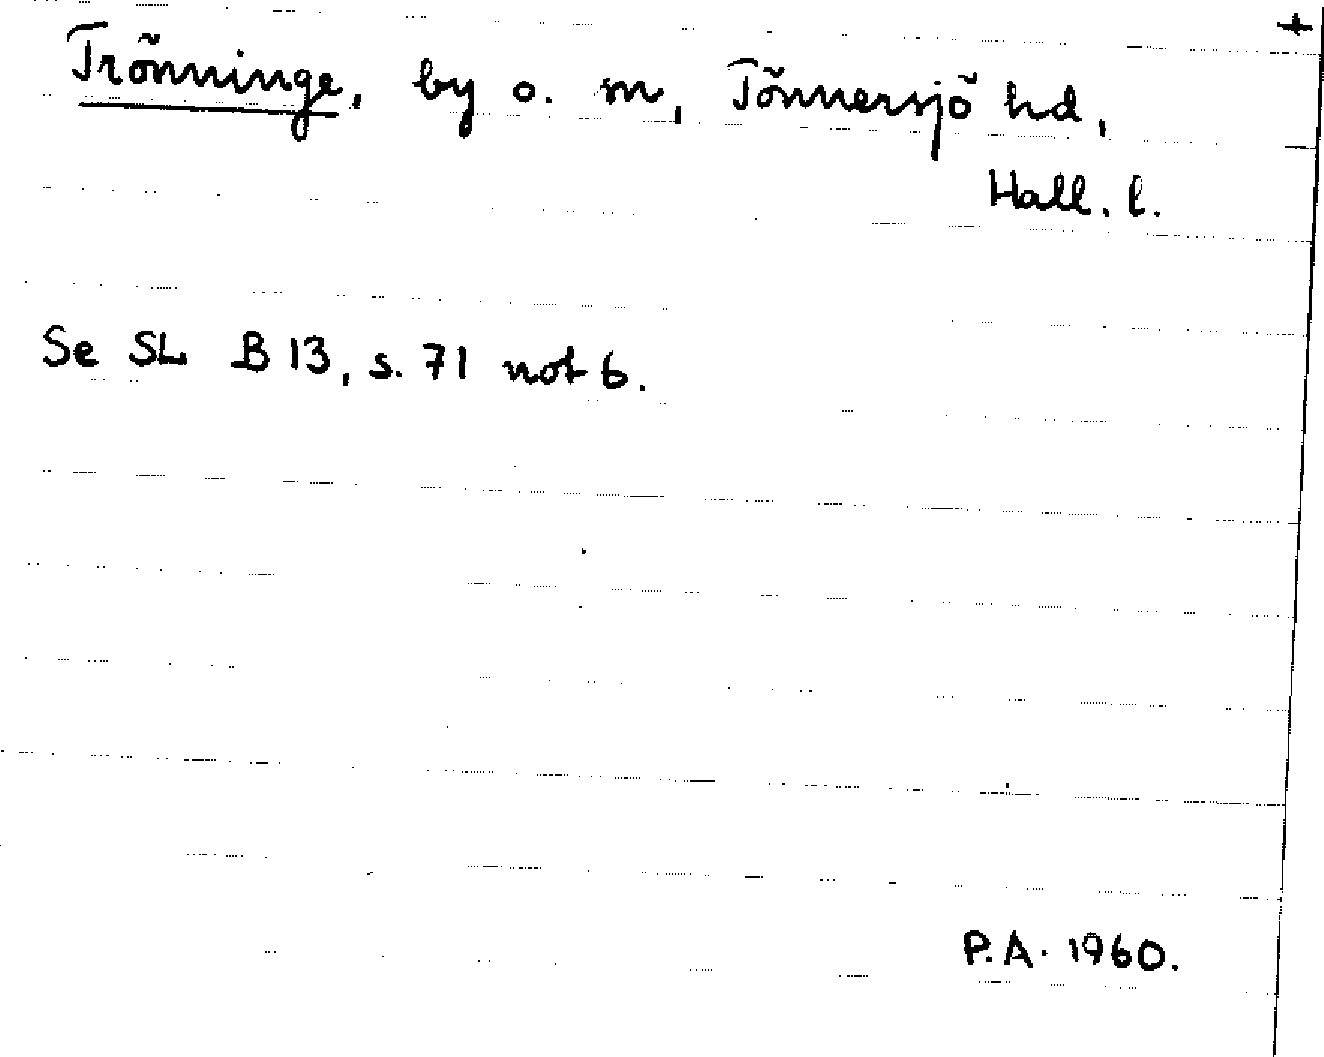 +
Trönninge, by o. sn, Tönnersjö hd,
Hall. l.
Se SL B 13, s. 71 not 6.
P.A. 1960.